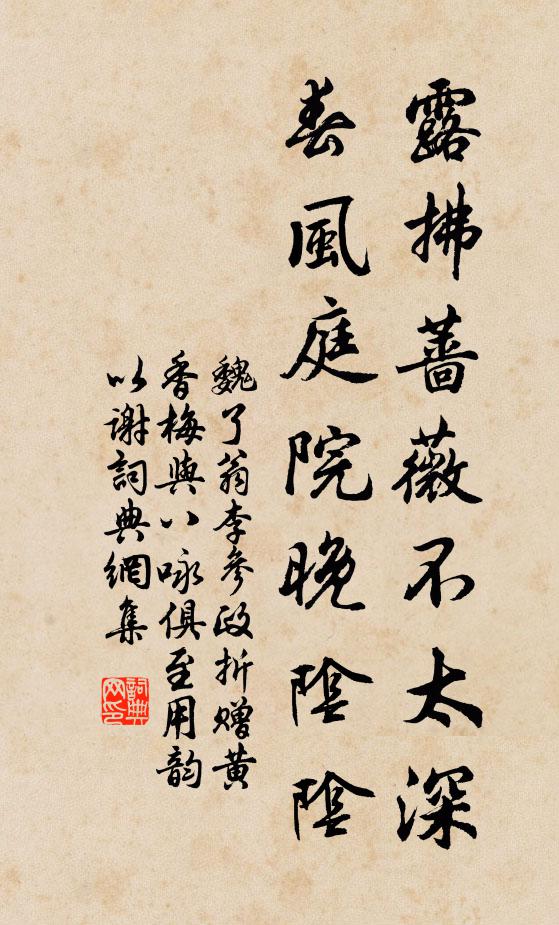 露拂薔薇不太深
春風庭院晚陰陰
魏了翁李參政折贈黃
香梅與八咏俱至用韵
以謝詞典網集
詞典
网印